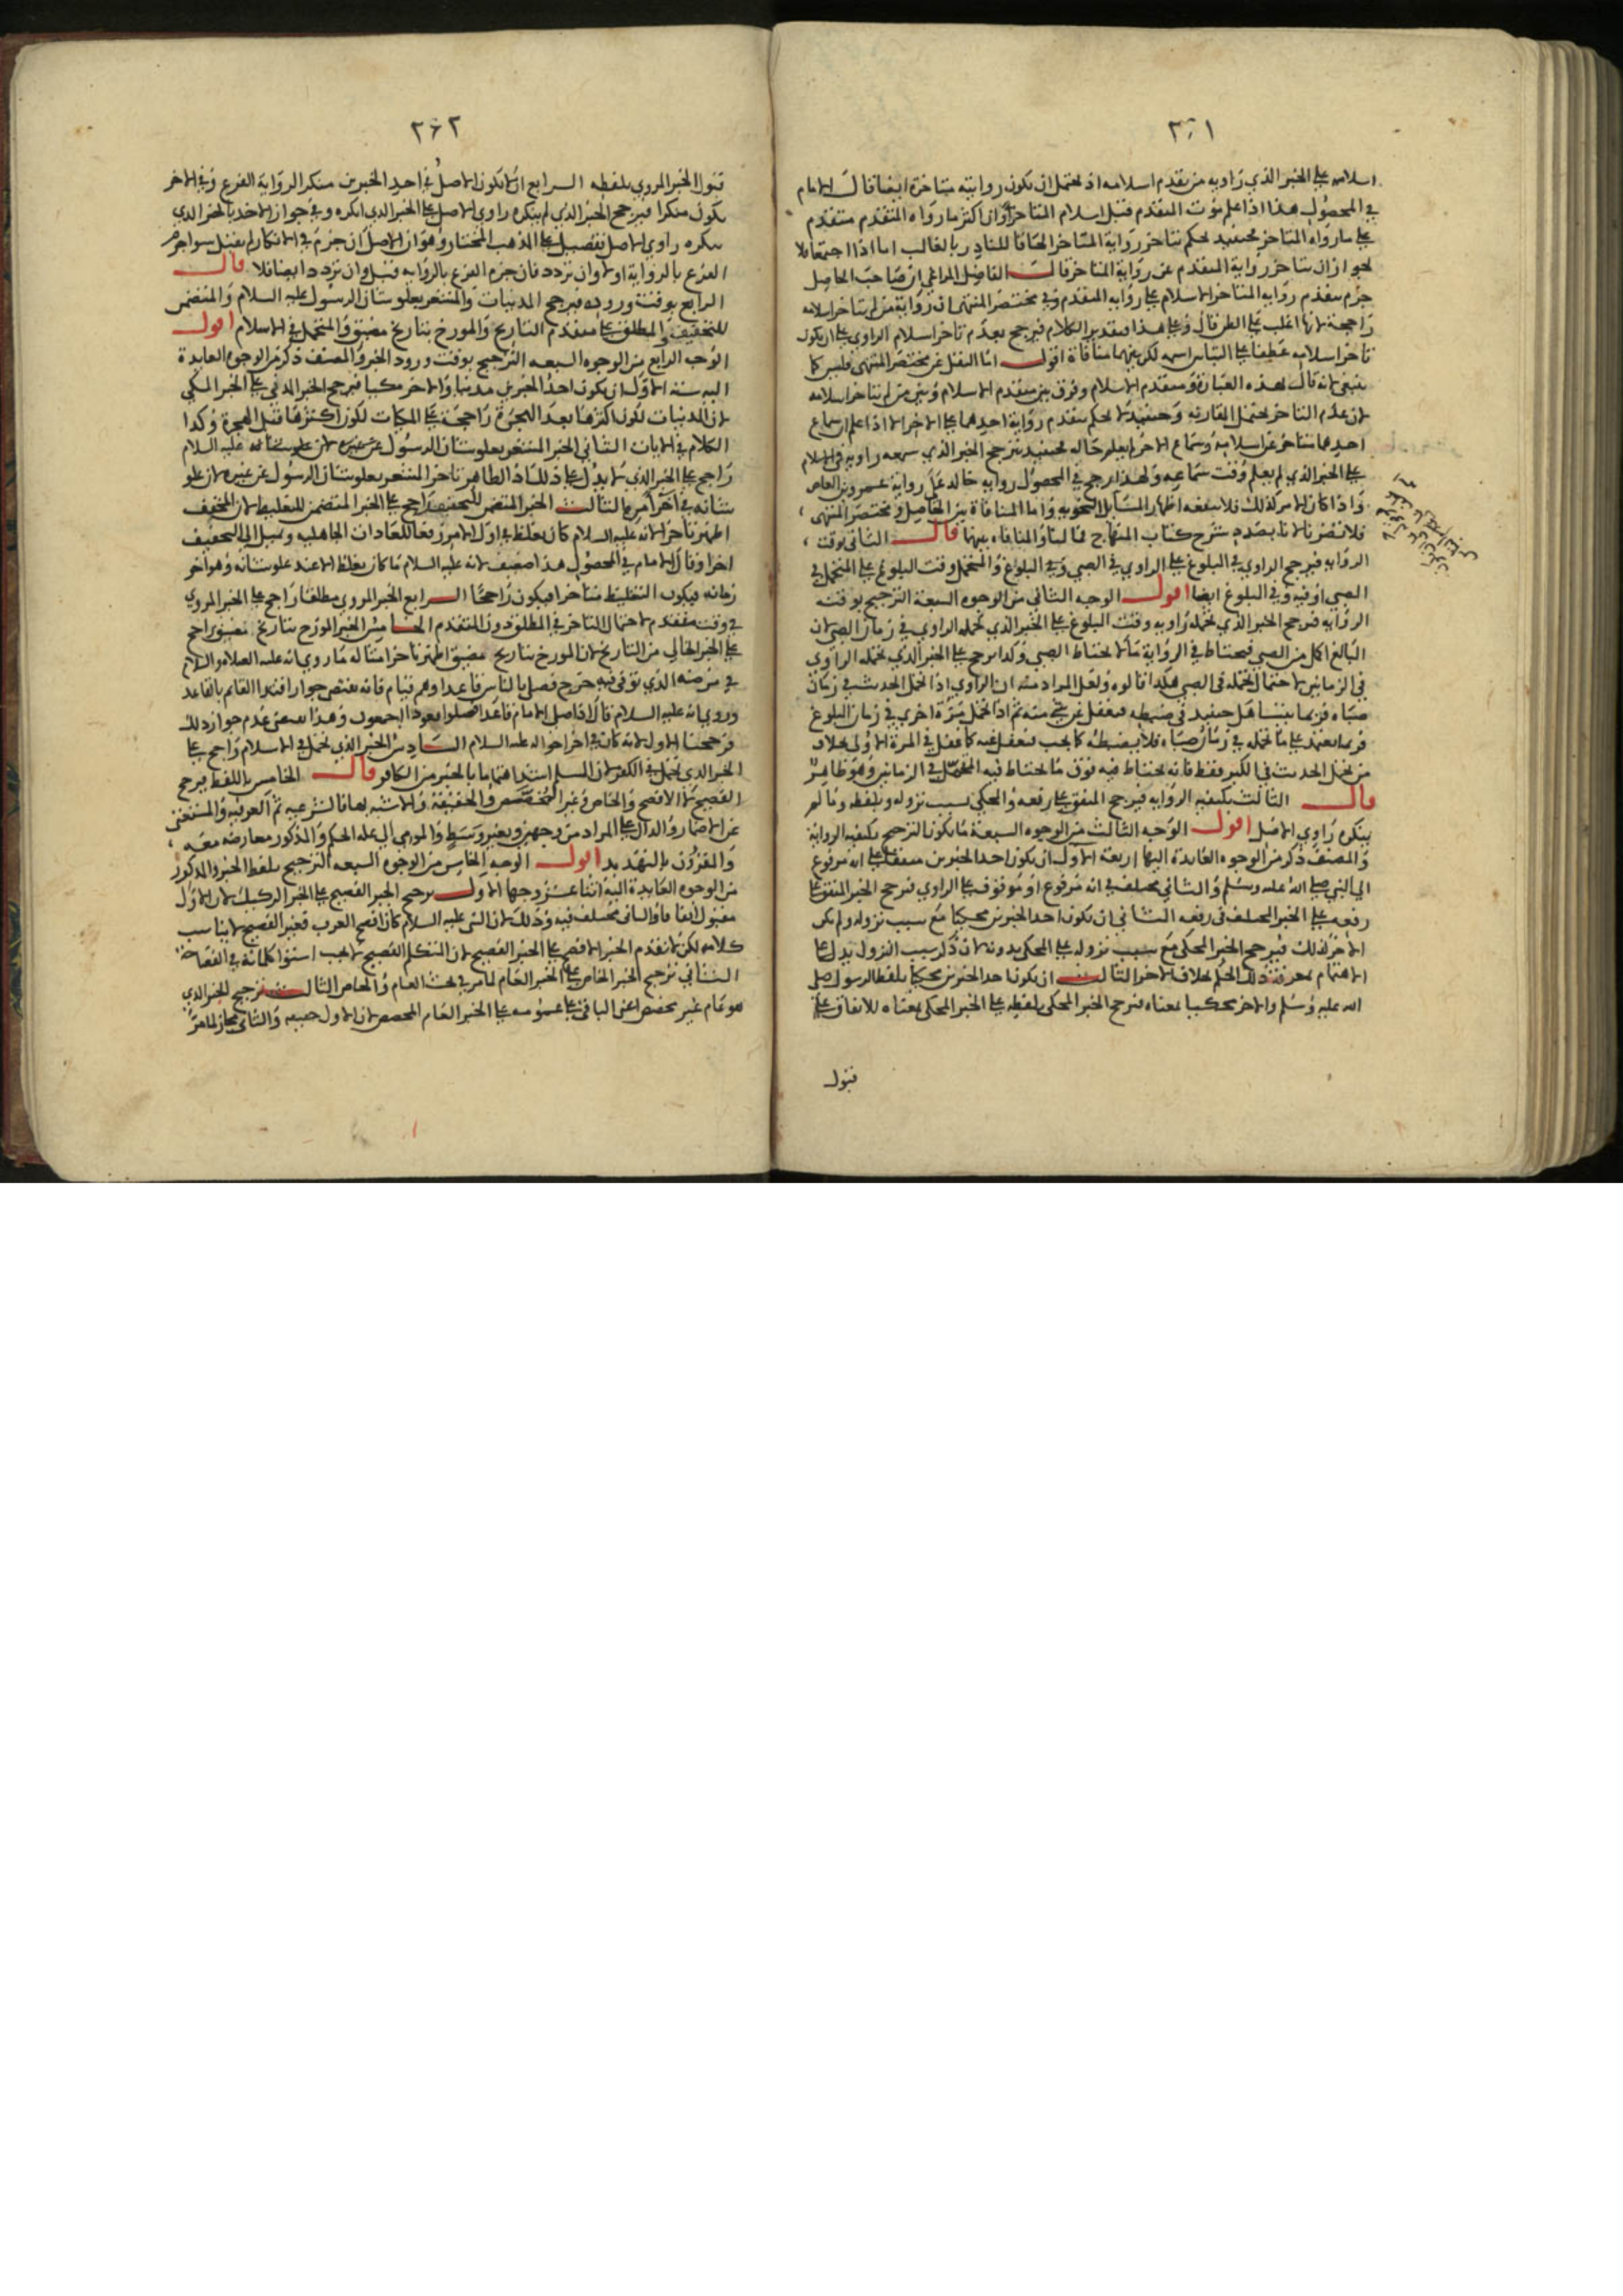 ٢٦١
اسلامه على الخبر الذي راويه من تقدم اسلامه اذ يحتمل ان تكون روايته متاخرة ايضا قال الامام
في المحصول هذا اذا علم موت المتقدم قبل اسلام المتاخر او ان اكثر ما رواه المتقدم متقدم
على ما رواه المتاخر فحينئذ نحكم بتاخر رواية المتاخر الحاقا للنادر بالغالب اما اذا اجتمعا فلا
لجواز ان تتاخر رواية المتقدم عن رواية المتاخر قال الفاضل المراغي ان صاحب الحاصل
جزم بتقدم رواية المتاخر الاسلام على رواية المتقدم وفي مختصر المنتهى ان رواية من لم يتاخر اسلامه
راجحة لانها اغلب على الظن قال وعلى هذا فتقدير الكلام فيرجح بعدم تاخر اسلام الراوي على ان يكون
تاخر اسلامه عطفا على لكن بينهما منافاة اقول اما النقل عن مختصر المنتهى فليس كما
ينبغي لانه قال بهذه العبارة ومتقدم الاسلام وفرق بين متقدم الاسلام وبين من لم يتاخر اسلامه
لان عدم التاخر يحتمل المقارنه وحينئذ لا نحكم بتقدم رواية احدهما على الاخر الا اذا علم ان سماع
احدهما متاخر عن اسلامه وسماع الاخر لم يعلم حاله فحينئذ نرجح الخبر الذي سمعه راويه في الاسلام
على الخبر الذي لم يعلم وقت سماعه ولهذا يرجح في المحصول رواية خالد على رواية عمرو بن العاص
واذا كان الامر كذلك فلا ينفعه اظهار المسايل النحويه واما المنافاة بين الحاصل ومختصر المنتهى
فلا تضرنا لانا بصدد شرح كتاب المنهاج فما لنا والمنافاه بينهما قال الثاني بوقت
الروايه فيرجح الراوي في البلوغ على الراوي في الصبي وفي البلوغ والمتحمل وقت البلوغ على المتحمل في
الصبي او فيه وفي البلوغ ايضا اقول الوجه الثاني من الوجوه السبعة الترجيح بوقت
الروايه فيرجح الخبر الذي تحمله راويه وقت البلوغ على الخبر الذي تحمله الراوي في زمان الصبي لان
البالغ اكمل من الصبي فيحتاط في الرواية ما لا يحتاط الصبي وكذا يرجح على الخبر الذي تحمله الراوي
في الزمانين لاحتمال تحمله في الصبي هكذا قالوه ولعل المراد منه ان الراوي اذا تحمل الحديث في زمان
صباه فربما يتساهل حينئذ في ضبطه فيغفل عن شي منه ثم اذا تحمل مرة اخرى في زمان البلوغ
فربما يعتمد على ما تحمله في زمان صباه فلا يضبطه كما يجب فيغفل عنه كما غفل في المرة الاولى بخلاف
من تحمل الحديث في الكبر فقط فانه يحتاط فيه فوق ما يحتاط فيه المتحمل في الزمانين وهو ظاهر
قال الثالث بكيفيه الروايه فيرجح المتفق على رفعه والمحكي بسبب نزوله وبلفظه وما لم
ينكره راوي الاصل اقول الوجه الثالث من الوجوه السبعة ما يكون الترجيح بكيفيه الرواية
والمصنف ذكر من الوجوه العايدة اليها اربعة الاول ان يكون احد الخبرين متفقا على انه مرفوع
الي النبي صلى الله عليه وسلم والثاني مختلف في انه مرفوع او موقوف على الراوي فنرجح الخبر المتفق على
رفعه على الخبر المختلف في رفعه الثاني ان يكون احد الخبرين محكيا مع سبب نزوله ولم يكن
الاخر كذلك فيرجح الخبر المحكي مع سبب نزوله على المحكي بدونه لان ذكر سبب النزول يدل على
الاهتمام بمعرفة ذلك الحكم بخلاف الاخر الثالث ان يكون احد الخبرين محكيا بلفظ الرسول صلى
الله عليه وسلم والاخر محكيا بمعناه فنرجح الخبر المحكي بلفظه على الخبر المحكي بمعناه للاتفاق على
قبول
٢٦٢
قبول الخبر المروي بلفظه الرابع ان لا يكون الاصل في احد الخبرين منكرا لرواية الفرع وفي الاخر
يكون منكرا فيرجح الخبر الذي لم ينكره راوي الاصل على الخبر الذي انكره وفي جواز الاخذ بالخبر الذي
ينكره راوي الاصل تفصيل على المذهب المختار وهو ان الاصل ان جزم في الانكار لم يقبل سوا جزم
الفرع بالرواية اولا وان تردد فان جزم الفرع بالروايه قبل وان تردد ايضا فلا قال
الرابع بوقت وروده فيرجح المدنيات والمشعر بعلو شان الرسول عليه السلام والمتضمن
للتخفيف والمطلق على متقدم التاريخ والمورخ بتاريخ مضيق والمتحمل في الاسلام اقول
الوجه الرابع من الوجوه السبعه الترجيح بوقت ورود الخبر والمصنف ذكر من الوجوه العايدة
اليه ستة الاول ان يكون احد الخبرين مدنيا والاخر مكيا فيرجح الخبر المدني على الخبر المكي
لان المدنيات لكون اكثرها بعد الهجرة راجحة على المكيات لكون اكثرها قبل الهجرة وكذا
الكلام في الايات الثاني الخبر المشعر بعلو شان الرسول عليه السلام
راجح على الخبر الذي لا يدل على ذلك اذ الظاهر تاخر المشعر بعلو شان الرسول عن غيره لان علو
شانه في اخر امره الثالث الخبر المتضمن للتخفيف راجح على الخبر المتضمن للتغليظ لان المخفف
اظهر تاخرا لانه عليه السلام كان يغلظ في اول الامر زجرا للعادات الجاهليه ويميل الى التخفيف
اخرا وقال الامام في المحصول هذا ضعيف لانه عليه السلام ما كان يغلظ الا عند علو شانه وهو اخر
زمانه فيكون التغليظ متاخرا فيكون راجحا الرابع الخبر المروي مطلقا راجح على الخبر المروي
في وقت متقدم لاحتمال التاخر في المطلق دون المتقدم الخامس الخبر المورخ بتاريخ مضيق راجح
على الخبر الخالي من التاريخ لان المورخ بتاريخ مضيق اظهر تاخرا مثاله ما روي انه عليه الصلاه والسلام
في مرضه الذي توفي فيه خرج فصلى بالناس قاعدا وهم قيام فانه يقتضي جواز اقتدا القايم بالقاعد
وروي انه عليه السلام قال اذا صلى الامام قاعدا فصلوا قعودا اجمعون وهذا يقتضي عدم جواز ذلك
فرجحنا الاول لانه كان في اخر احواله عليه السلام السادس الخبر الذي تحمل في الاسلام راجح على
الخبر الذي تحمل في الكفر لان المسلم اشد اهتماما بالخبر من الكافر قال الخامس باللفظ فيرجح
الفصيح لا الافصح والخاص وغير المخصص والحقيقة والاشبه بها فالشرعيه ثم العرفيه والمستغني
عن الاضمار والدال على المراد من وجهين وبغير وسط والمومي الى عله الحكم والمذكور معارضه معه
والمقرون بالتهديد اقول الوجه الخامس من الوجوه السبعه الترجيح بلفظ الخبر والمذكور
من الوجوه العايدة اليه اثنا عشر وجها الاول يرجح الخبر الفصيح على الخبر الركيك لان الاول
مقبول اتفاقا والثاني مختلف فيه وذلك لان النبي عليه السلام كان افصح العرب فغير الفصيح لا يناسب
كلامه لكن لا نقدم الخبر الافصح على الخبر الفصيح لان المتكلم الفصيح لا يجب استوا كلماته في الفصاحة
الثاني نرجح الخبر الخاص على الخبر العام لما مر في بحث العام والخاص الثالث نرجح الخبر الذي
هو عام غير مخصص اعني الباقي على عمومه على الخبر العام المخصص لان الاول حقيقه والثاني مجاز لما مر